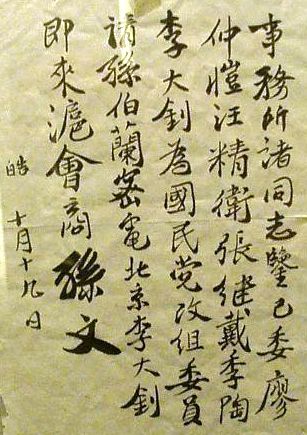 事務所諸同志鑒已委廖
仲愷汪精衛張继戴季陶
李大釗為國民党改组委員
請孫伯蘭密電北京李大釗
即來滬會商 孫文
皓 十月十九日